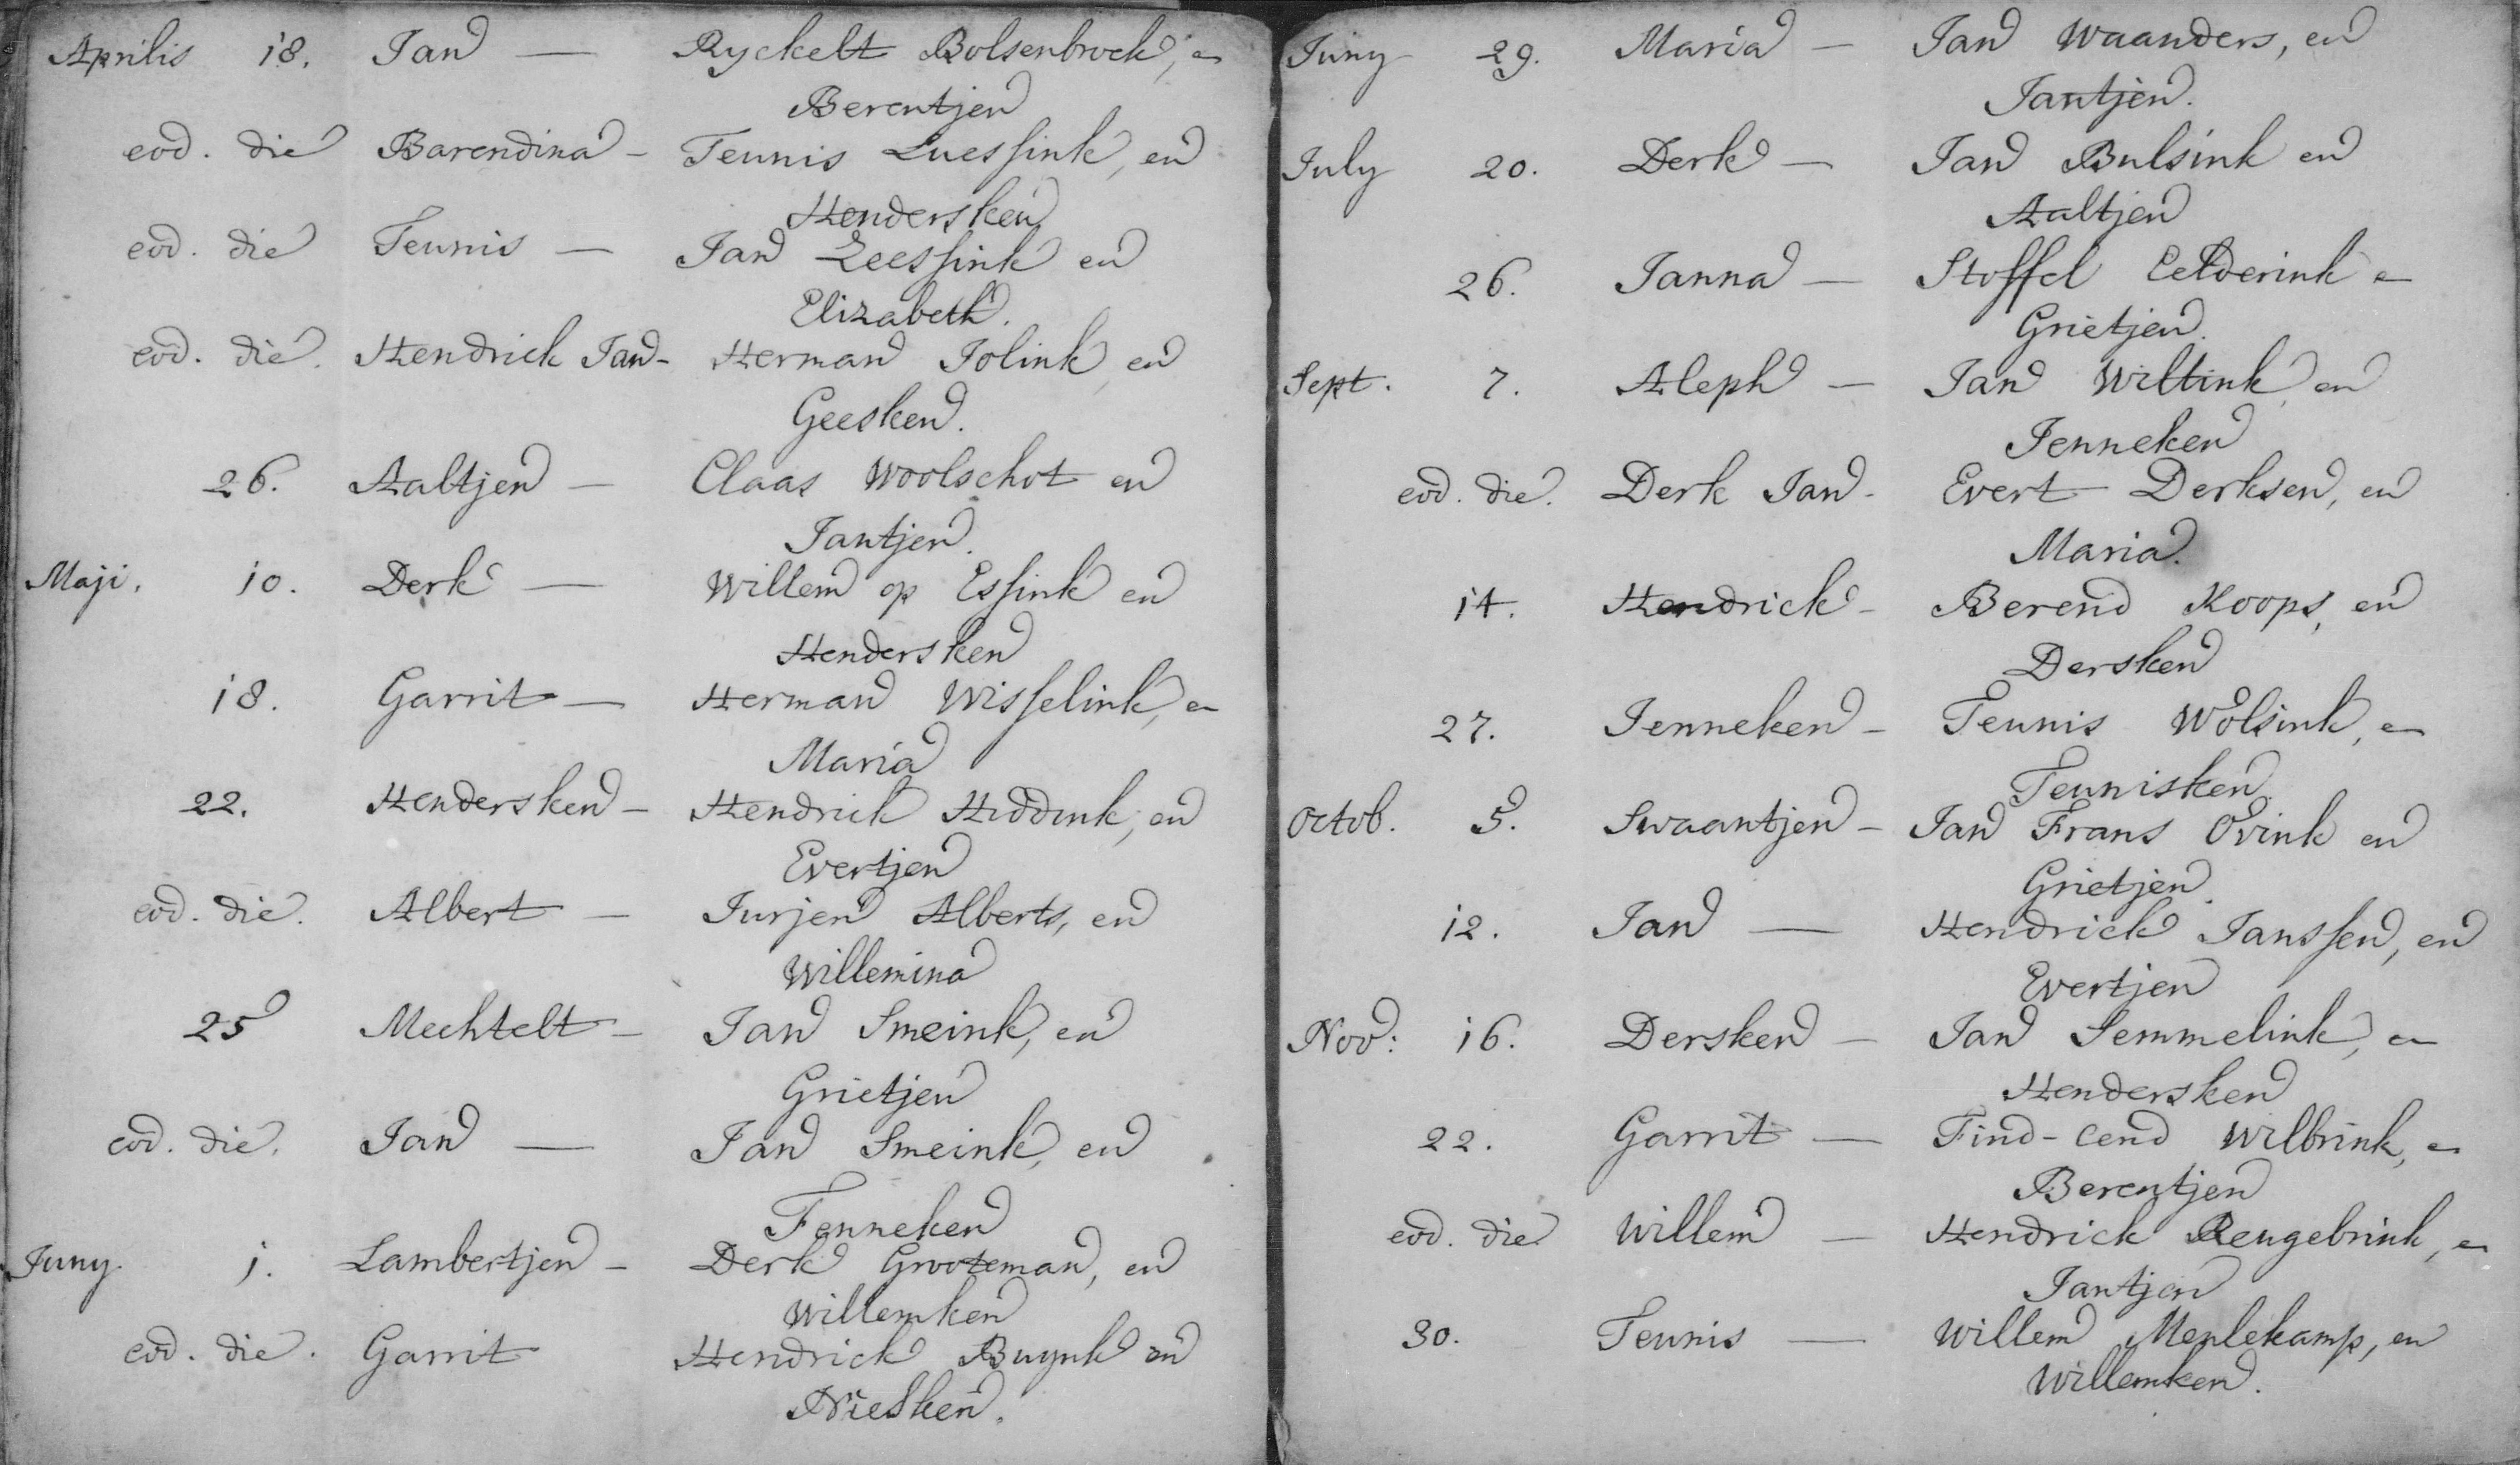 Aprilis 18. Jan — Ryckelt Bolsenbroek, en
Berentjen
eod. die Barendina - Teunis Luessink, en
Hendersken
eod. die Teunis — Jan Leessink en
Elizabeth.
eod. die. Hendrick Jan - Herman Jolink, en
Geesken.
26. Aaltjen — Claas Woolschot en
Jantjen.
Maji. 10. Derk — Willem op Essink en
Hendersken
18. Garrit — Herman Wisselink, en
Maria
22. Hendersken - Hendrick Hiddink, en
Evertjen
eod. die. Albert — Jurjen Alberts, en
Willemina
25 Mechtelt - Jan Smeink, en
Grietjen
eod. die. Jan — Jan Smeink, en
Fenneken
Juny. 1. Lambertjen - Derk Grooteman, en
Willemken
eod. die. Garrit Hendrick Buynk en
Niesken.
Juny 29. Maria — Jan Waanders, en
Jantjen.
July 20. Derk — Jan Bulsink en
Aaltjen
26. Janna — Stoffel Eelderink en
Grietjen.
Sept. 7. Aleph — Jan Wiltink, en
Jenneken
eod. die. Derk Jan - Evert Derksen, en
Maria.
14. Hendrick - Berend Koops, en
Dersken
27. Jenneken - Teunis Wolsink, en
Teunisken.
Octob. 5. Swaantjen - Jan Frans Ovink en
Grietjen.
12. Jan — Hendrick Janssen, en
Evertjen
Nov: 16. Dersken — Jan Semmelink, en
Hendersken
22. Garrit — Wilbrink, en
Berentjen
eod. die Willem — Hendrick Rengebrink, en
Jantjen
30. Teunis — Willem Menlekamp, en
Willemken.